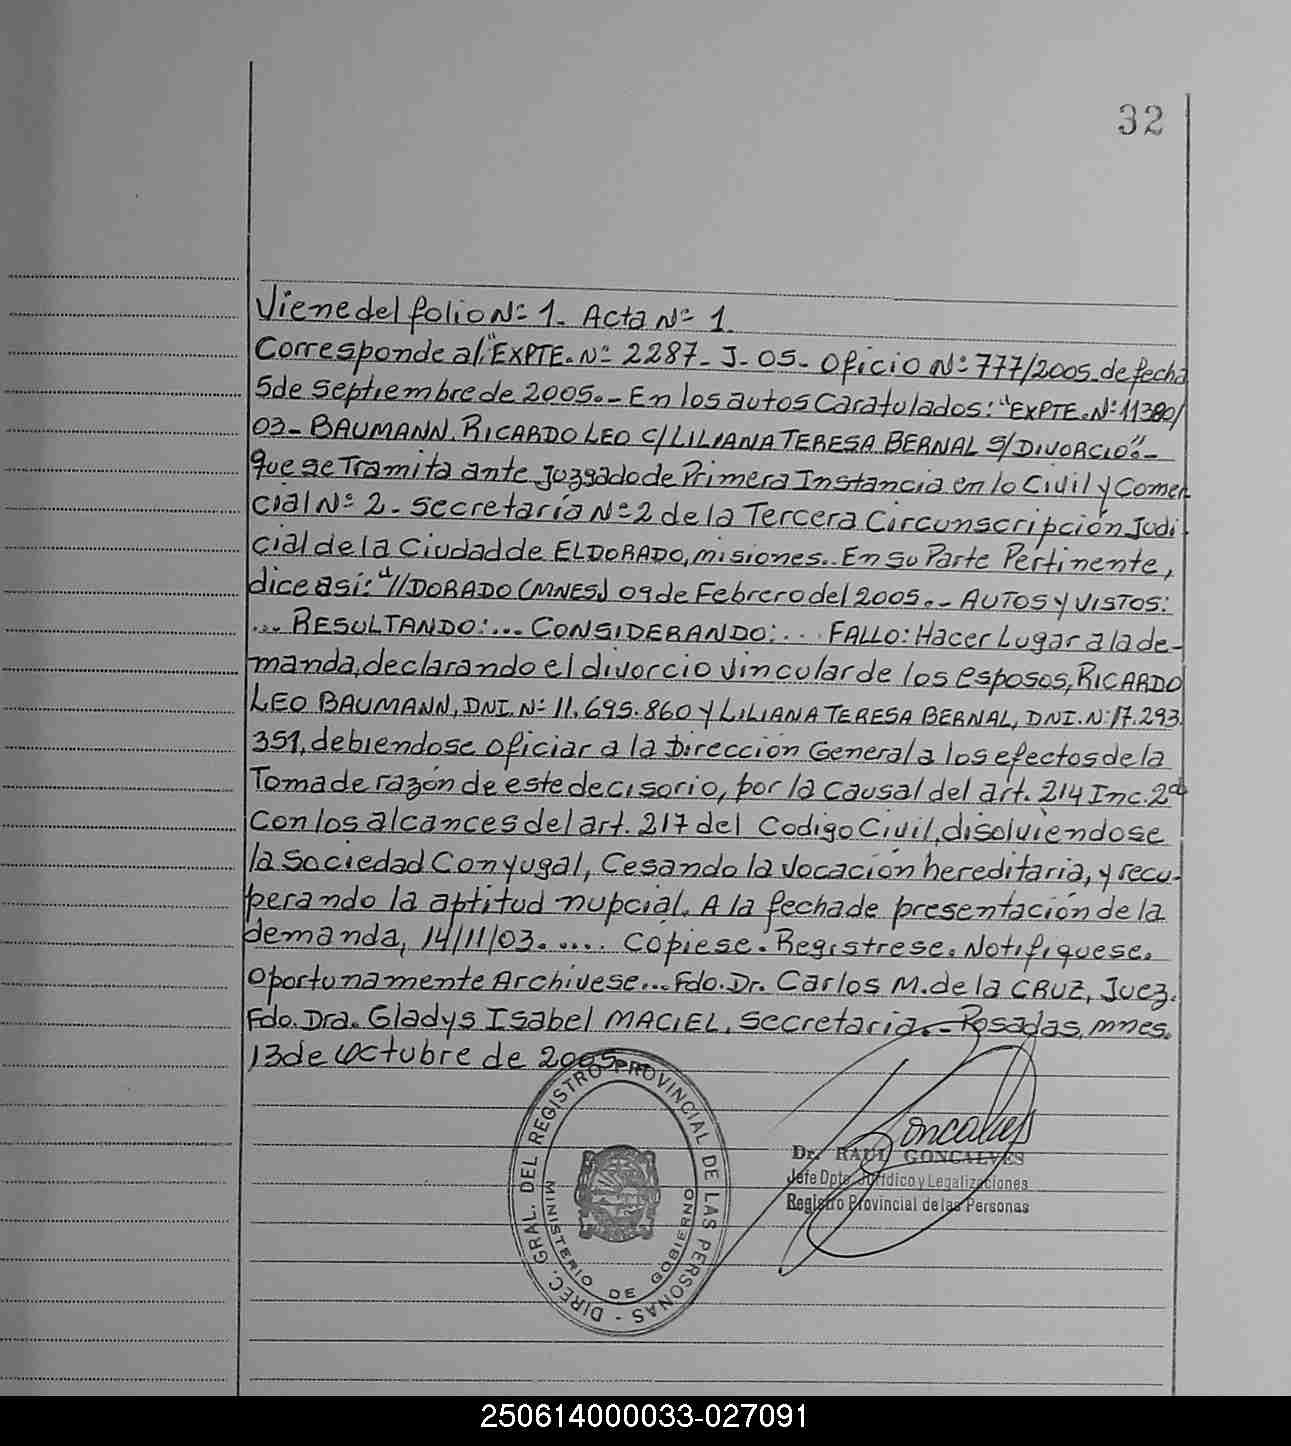 32
Viene del folio Nº 1. Acta Nº 1.
Corresponde al: "EXPTE. Nº 2287- J- 05- Oficio Nº 777/2005 de fecha
5 de Septiembre de 2005.- En los autos Caratulados: "EXPTE. Nº 11380/
03- BAUMANN, RICARDO LEO C/ LILIANA TERESA BERNAL S/ DIVORCIO".-
que se Tramita ante Juzgado de Primera Instancia en lo Civil y Comer-
cial Nº 2 - Secretaría Nº 2 de la Tercera Circunscripción Judi-
cial de la Ciudad de ELDORADO, misiones.. En su Parte Pertinente,
dice así: "//DORADO (MNES) 09 de Febrero del 2005.- AUTOS Y VISTOS:
... RESULTANDO:... CONSIDERANDO:... FALLO: Hacer Lugar a la de-
manda, declarando el divorcio vincular de los esposos, RICARDO
LEO BAUMANN, DNI. Nº 11.695.860 Y LILIANA TERESA BERNAL, DNI. Nº 17.293.
351, debiendose oficiar a la Dirección General a los efectos de la
Toma de razón de este decisorio, por la causal del art. 214 Inc. 2º
Con los alcances del art. 217 del Codigo Civil, disolviéndose
la Sociedad Conyugal, Cesando la Vocación hereditaria, y recu-
perando la aptitud nupcial. A la fecha de presentación de la
demanda, 14/11/03..... Cópiese. Registrese. Notifíquese.
Oportunamente Archívese... Fdo. Dr. Carlos M. de la CRUZ, Juez.
Fdo. Dra. Gladys Isabel MACIEL, Secretaria.- Posadas, mnes.
13 de Octubre de 2005.-
DIREC. GRAL. DEL REGISTRO PROVINCIAL DE LAS PERSONAS -
MINISTERIO DE GOBIERNO
Goncalves
Dr. RAUL GONCALVES
Jefe Dpto. Jurídico y Legalizaciones
Registro Provincial de las Personas
250614000033-027091